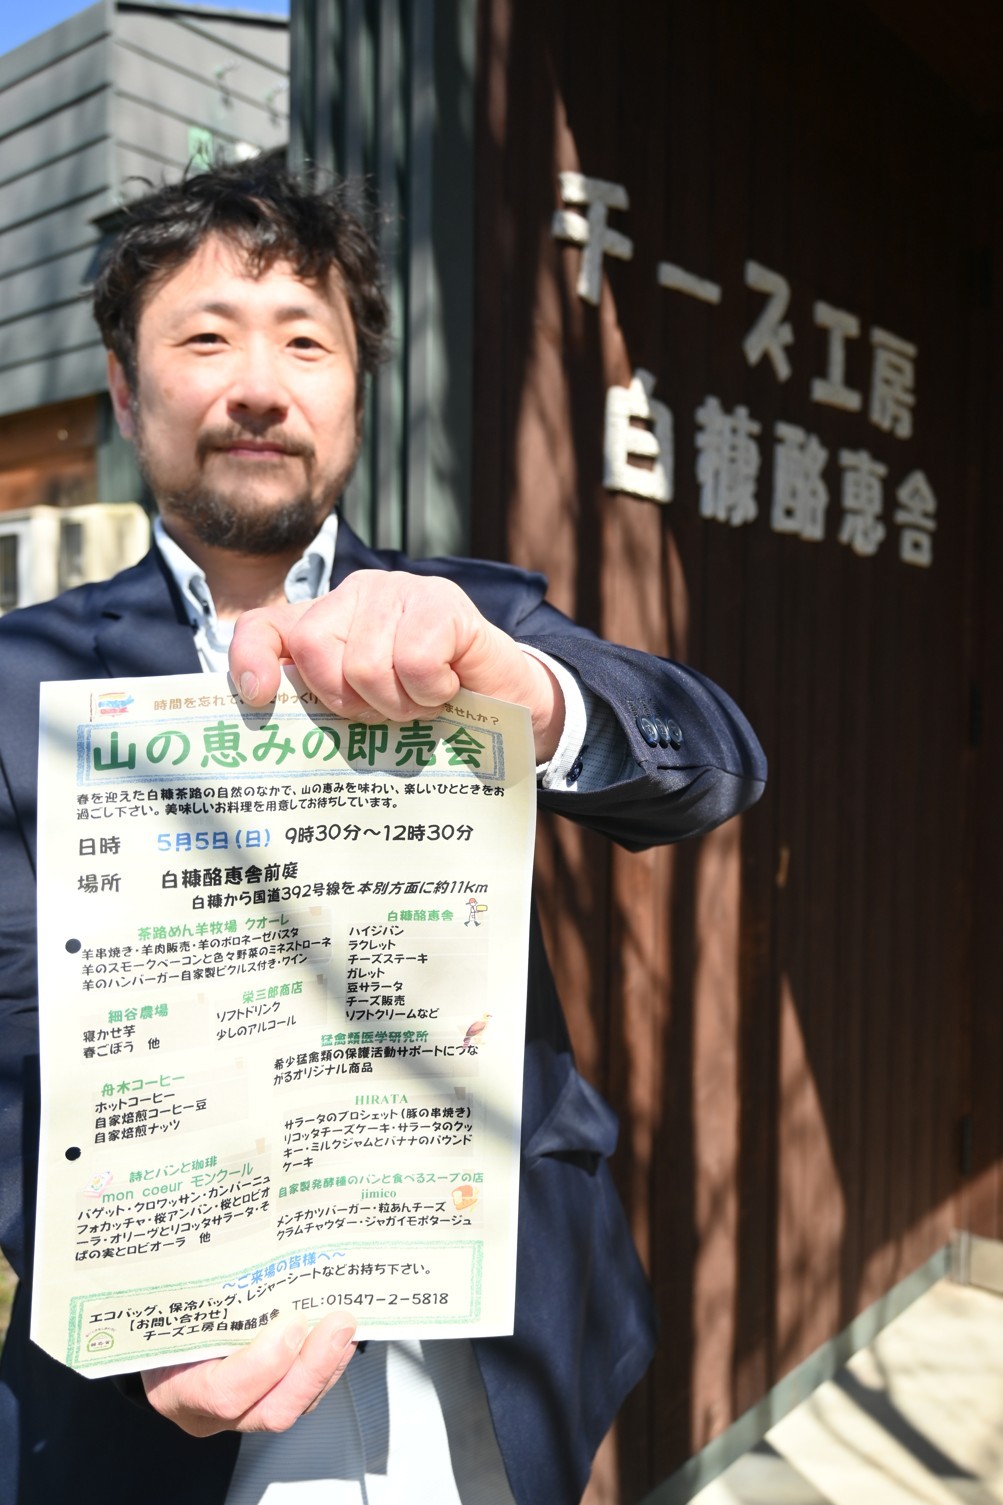 チーズ工房
白糠酪恵舎
時間を忘れて、
ゆっくり
ませんか？
山の恵みの即売会
春を迎えた白糠茶路の自然のなかで、山の恵みを味わい、楽しいひとときをお
過ごし下さい。美味しいお料理を用意してお待ちしています。
日時 5月5日(日) 9時30分～12時30分
場所 白糠酪恵舎前庭
白糠から国道392号線を本別方面に約11km
茶路めん羊牧場 クオーレ
羊串焼き・羊肉販売・羊のボロネーゼパスタ
羊のスモークベーコンと色々野菜のミネストローネ
羊のハンバーガー自家製ピクルス付き・ワイン
白糠酪恵舎
ハイジパン
ラクレット
チーズステーキ
ガレット
豆サラータ
チーズ販売
ソフトクリームなど
細谷農場
寝かせ芋
春ごぼう 他
栄三郎商店
ソフトドリンク
少しのアルコール
猛禽類医学研究所
希少猛禽類の保護活動サポートにつな
がるオリジナル商品
舟木コーヒー
ホットコーヒー
自家焙煎コーヒー豆
自家焙煎ナッツ
HIRATA
サラータのブロシェット(豚の串焼き)
リコッタチーズケーキ・サラータのクッ
キー・ミルクジャムとバナナのパウンド
ケーキ
詩とパンと珈琲
mon coeur モンクール
バゲット・クロワッサン・カンパーニュ
フォカッチャ・桜アンパン・桜とロビオ
ーラ・オリーヴとリコッタサラータ・そ
ばの実とロビオーラ 他
自家製発酵種のパンと食べるスープの店
jimico
メンチカツバーガー・粒あんチーズ
クラムチャウダー・ジャガイモポタージュ
～ご来場の皆様へ～
エコバッグ、保冷バッグ、レジャーシートなどお持ち下さい。
【お問い合わせ】
チーズ工房白糠酪恵舎 TEL:01547-2-5818